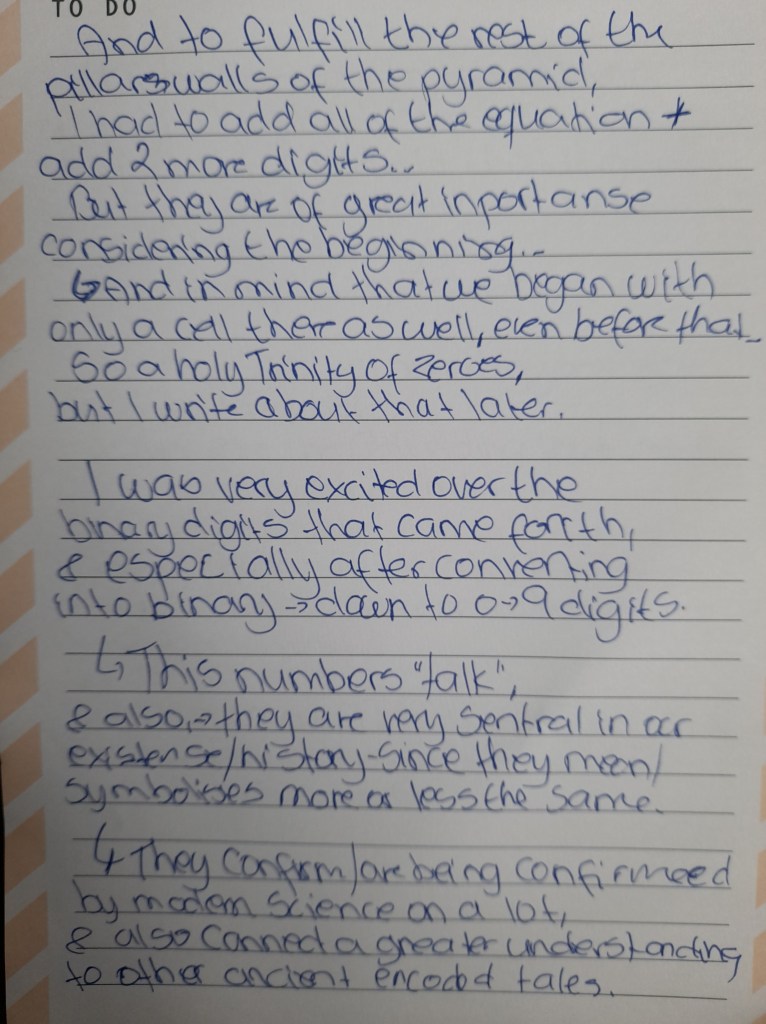 TO DO
And to fulfill the rest of the
pillarswalls of the pyramid,
I had to add all of the equation +
add 2 more digits...
But they are of great inportanse
considering the beginning...
↳And in mind that we began with
only a cell there as well, even before that...
So a holy Trinity of zeroes,
but I write about that later.
I was very excited over the
binary digits that came forth,
& especially after converting
into binary → down to 0→9 digits.
↳ This numbers "talk",
& also,→they are very sentral in our
existense/history-since they mean/
symbolises more or less the same.
↳ They confirm/are being confirmeed
by modern science on a lot,
& also conned a greater understanding
to other ancient encoded tales.